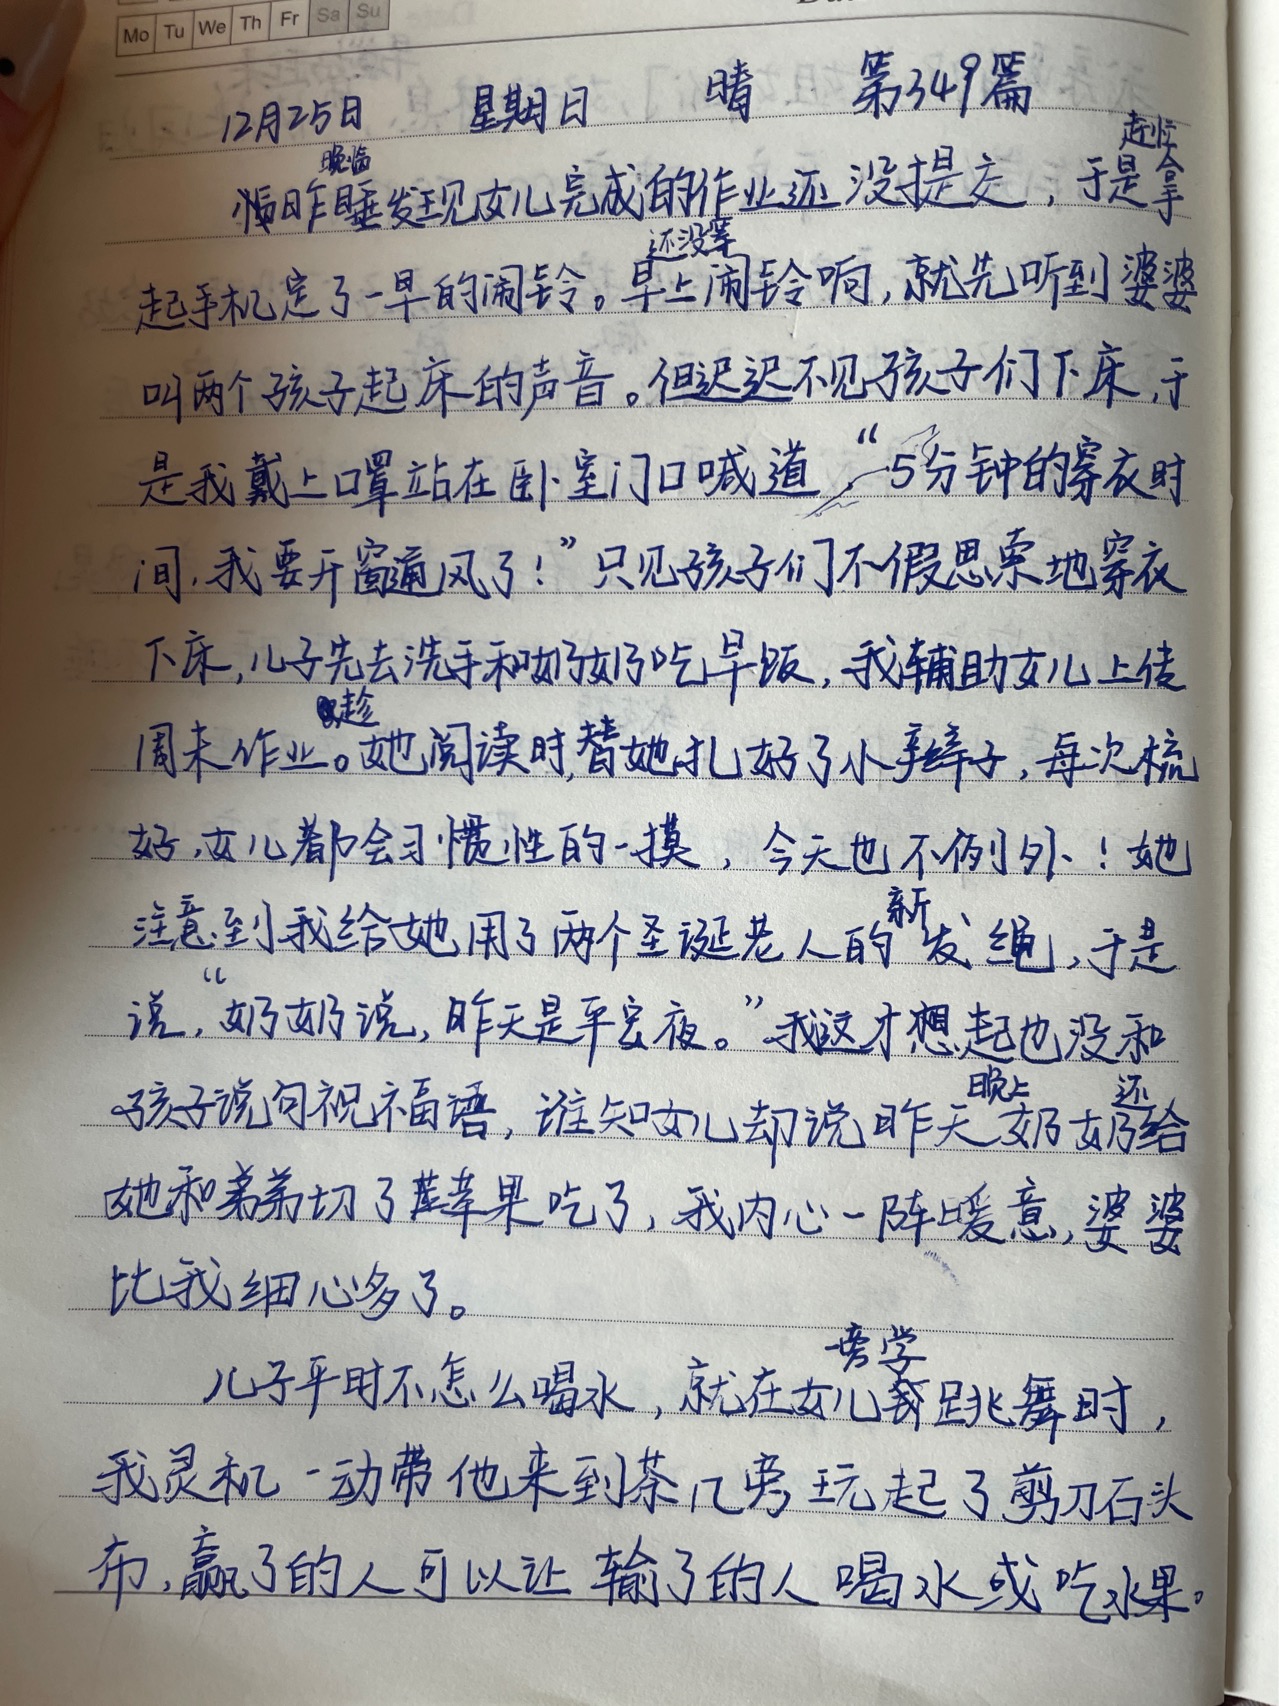 Mo Tu We Th Fr Sa Su
12月25日 星期日 晴 第349篇
昨晚临睡发现女儿完成的作业还没提交，于是赶忙拿
起手机定了一早的闹铃。还没等早上闹铃响，就先听到婆婆
叫两个孩子起床的声音。但迟迟不见孩子们下床，于
是我戴上口罩站在卧室门口喊道，“5分钟的穿衣时
间，我要开窗通风了！”只见孩子们不假思索地穿衣
下床，儿子先去洗手和奶奶吃早饭，我辅助女儿上传
周末作业。趁她阅读时，替她扎好了小辫子，每次梳
好，女儿都会习惯性的一摸，今天也不例外！她
注意到我给她用了两个圣诞老人的新发绳，于是
说，“奶奶说，昨天是平安夜。”我这才想起也没和
孩子说句祝福语，谁知女儿却说昨天晚上奶奶还给
她和弟弟切了苹果吃了，我内心一阵暖意，婆婆
比我细心多了。
儿子平时不怎么喝水，就在女儿一旁学跳舞时，
我灵机一动带他来到茶几旁玩起了剪刀石头
布，赢了的人可以让输了的人喝水或吃水果。